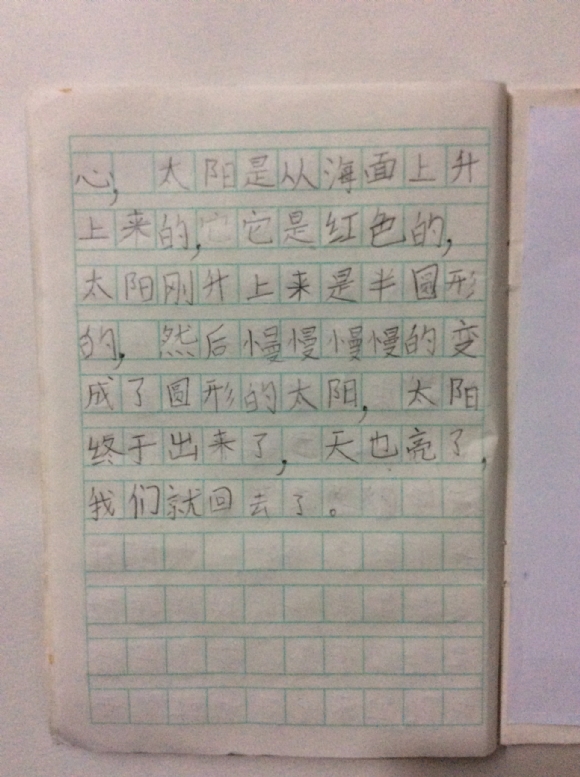 心，太阳是从海面上升
上来的，它是红色的，
太阳刚升上来是半圆形
的，然后慢慢慢慢的变
成了圆形的太阳，太阳
终于出来了，天也亮了，
我们就回去了。